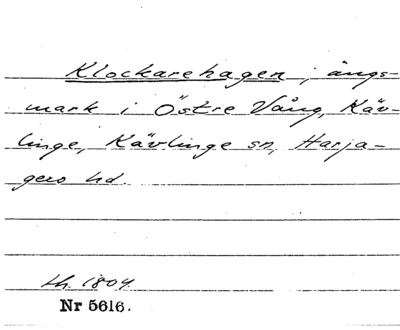 Klockarehagen, ängs-
mark i Östre Vång, Käv-
linge, Kävlinge sn, Harja-
gers hd.
Lh. 1804.
Nr 5616.